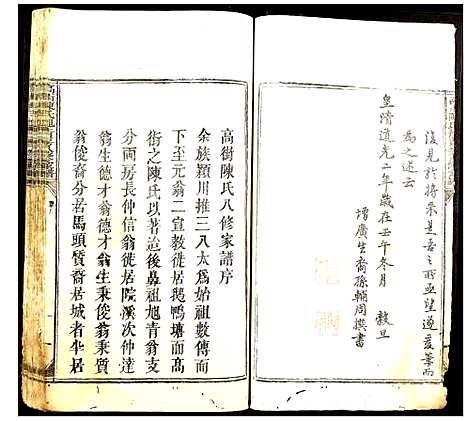 後見於將來是吾之所亟望遂爰筆而
為之述云
皇清道光二年歲在壬午冬月 穀旦
增廣生裔孫輔周撰書
高街陳氏八修家譜序
余族穎川推三八太爲始祖數傳而
下至元翁二宣教徙居鵝鴨塘而高
街之陳氏以著迨後鼻祖旭青翁支
分兩房長仲信翁徙居院溪次仲賢
翁生德才翁德才翁生秉俊翁秉質
翁俊裔分居馬頭質裔居城者半居